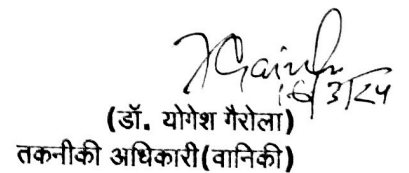 16/3/24
(डॉ. योगेश गैरोला)
तकनीकी अधिकारी(वानिकी)